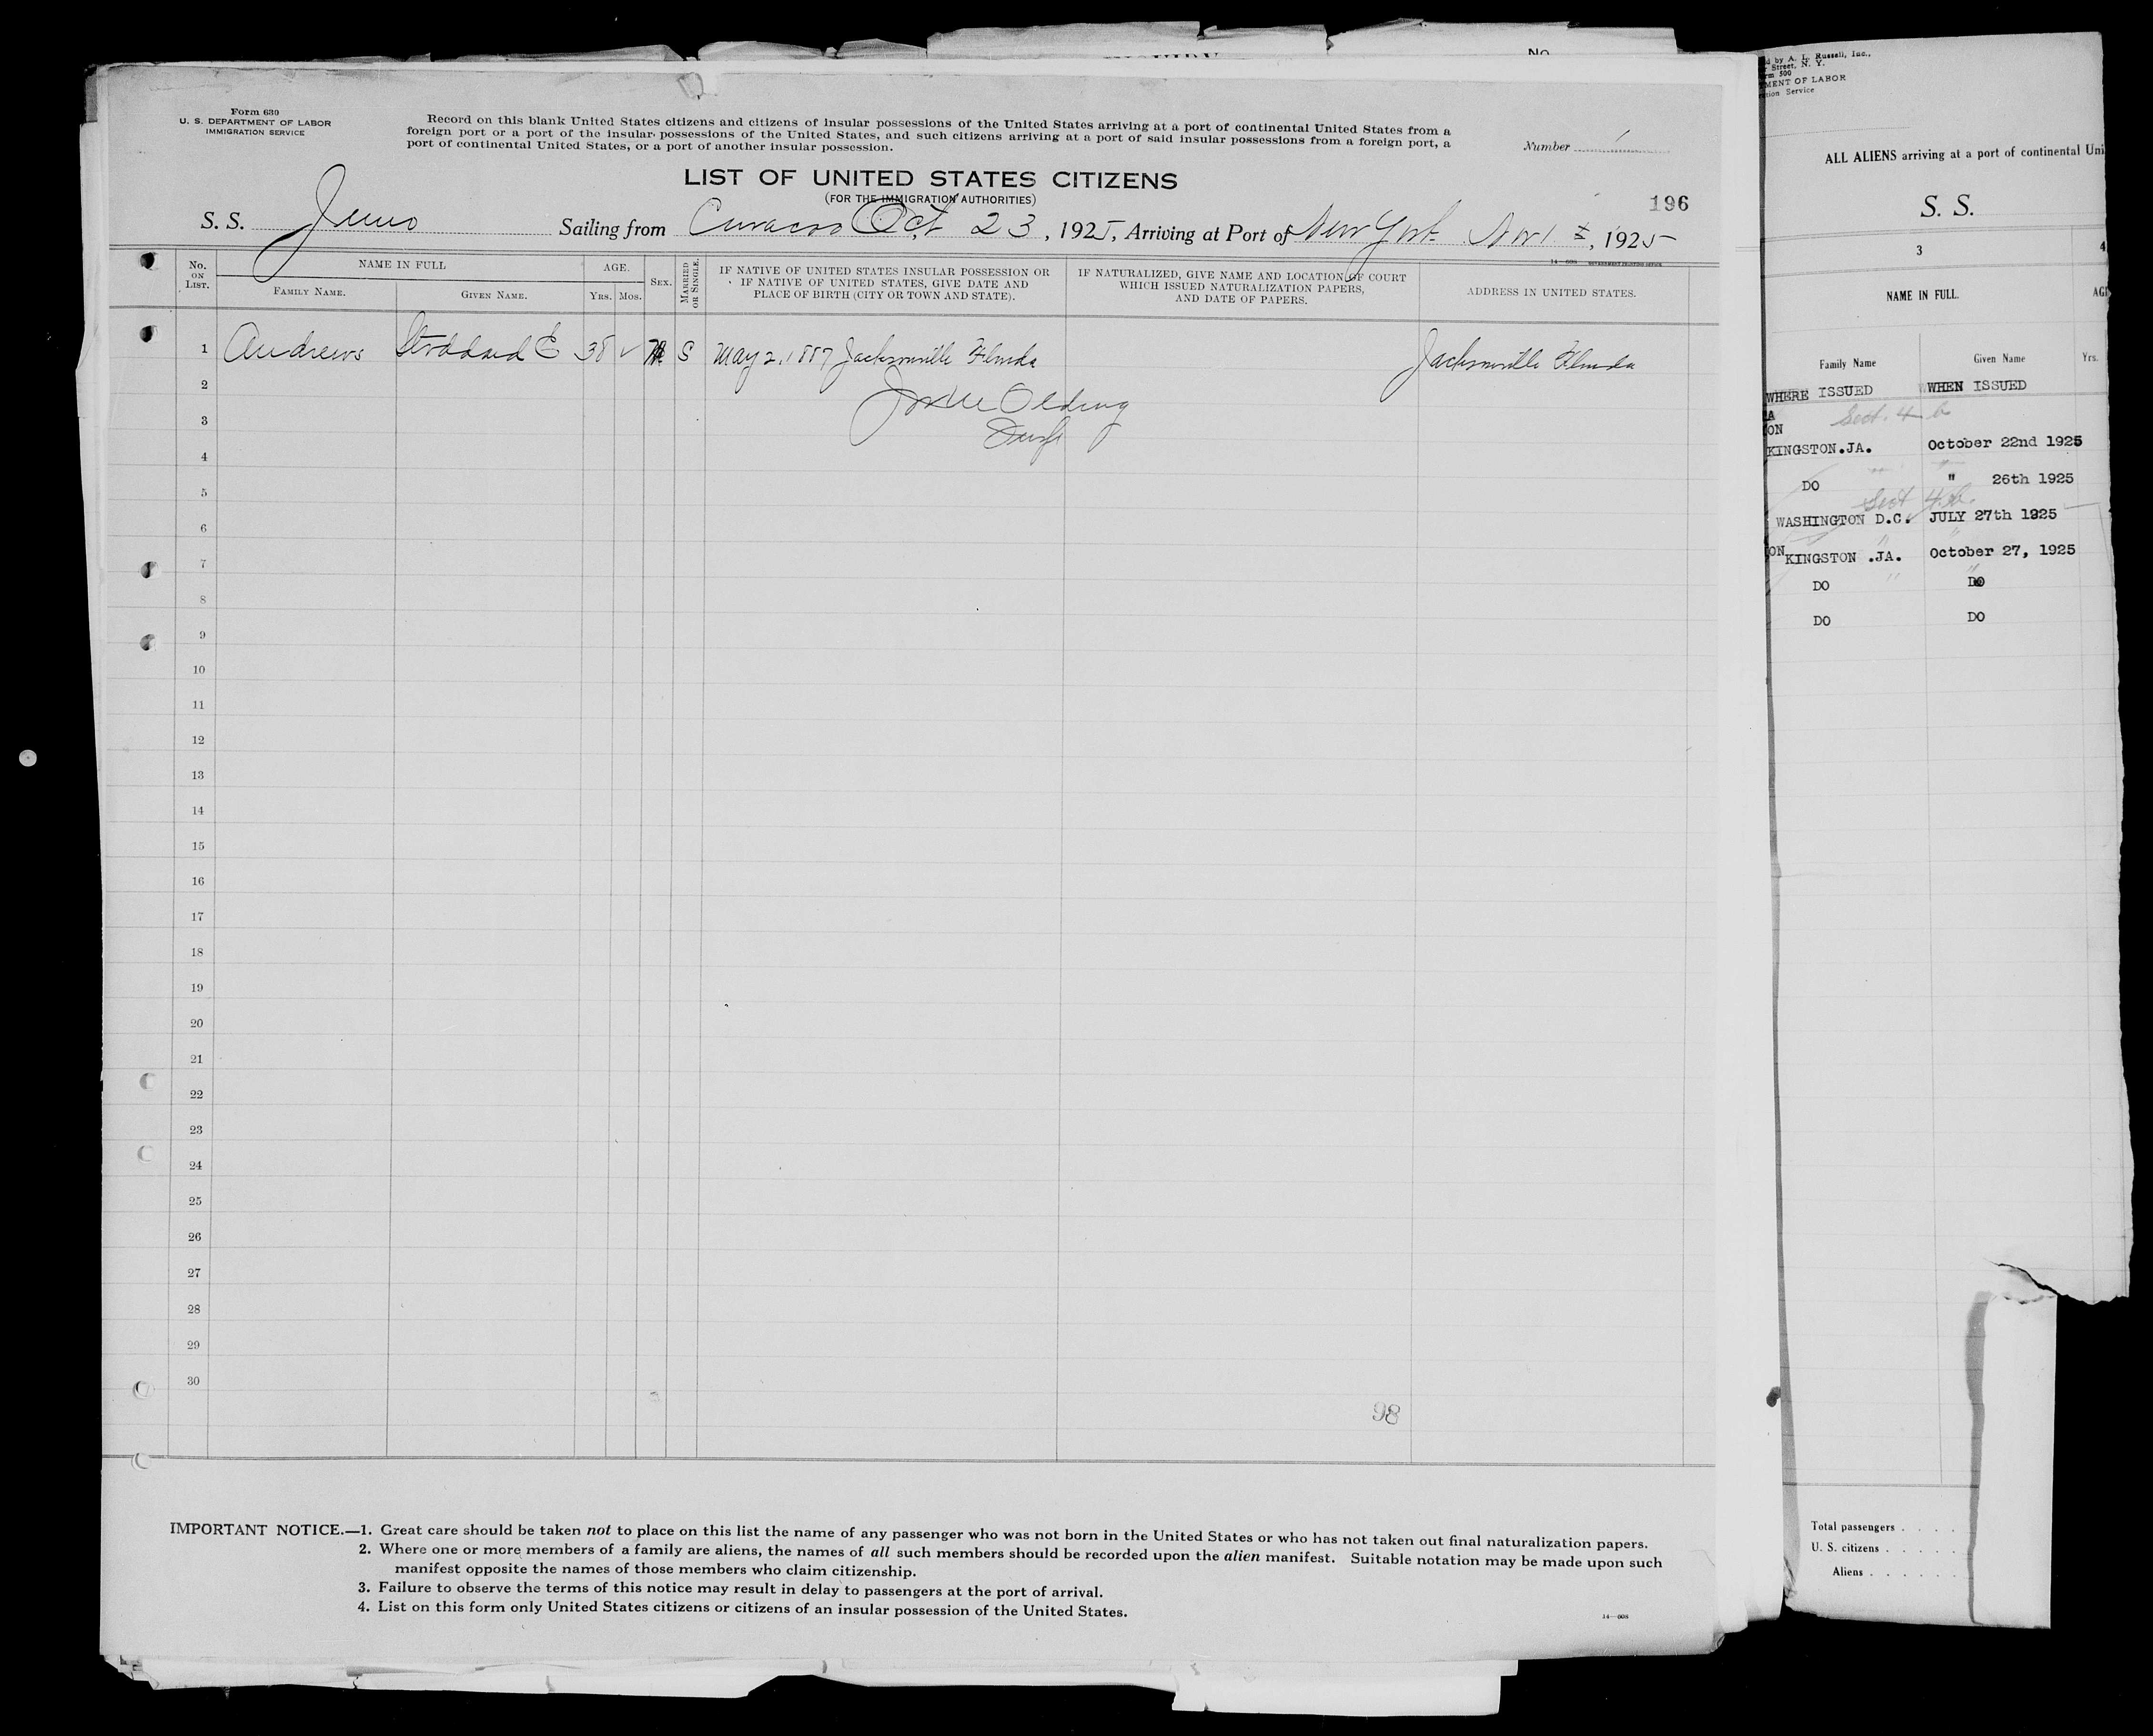 Form 630
U. S. DEPARTMENT OF LABOR
IMMIGRATION SERVICE
Record on this blank United States citizens and citizens of insular possessions of the United States arriving at a port of continental United States from a
foreign port or a port of the insular possessions of the United States, and such citizens arriving at a port of said insular possessions from a foreign port, a
port of continental United States, or a port of another insular possession.
Number 1
LIST OF UNITED STATES CITIZENS
(FOR THE IMMIGRATION AUTHORITIES)
196
S. S. Juno Sailing from Curacao Oct 23, 1925, Arriving at Port of New York Nov 1, 1925
No. ON LIST.
NAME IN FULL
FAMILY NAME.
GIVEN NAME.
AGE.
YRS. MOS.
SEX.
MARRIED OR SINGLE.
IF NATIVE OF UNITED STATES INSULAR POSSESSION OR
IF NATIVE OF UNITED STATES, GIVE DATE AND
PLACE OF BIRTH (CITY OR TOWN AND STATE).
IF NATURALIZED, GIVE NAME AND LOCATION OF COURT
WHICH ISSUED NATURALIZATION PAPERS,
AND DATE OF PAPERS.
ADDRESS IN UNITED STATES.
1 Andrews Stoddard E 38 ✓ M S May 2, 1887 Jacksonville Florida Jacksonville Florida
2
3
4
5
6
7
8
9
10
11
12
13
14
15
16
17
18
19
20
21
22
23
24
25
26
27
28
29
30
98
IMPORTANT NOTICE.—1. Great care should be taken not to place on this list the name of any passenger who was not born in the United States or who has not taken out final naturalization papers.
2. Where one or more members of a family are aliens, the names of all such members should be recorded upon the alien manifest. Suitable notation may be made upon such
manifest opposite the names of those members who claim citizenship.
3. Failure to observe the terms of this notice may result in delay to passengers at the port of arrival.
4. List on this form only United States citizens or citizens of an insular possession of the United States.
14—608
No
d by A. L. Russell, Inc.,
Street, N. Y.
rm 500
MENT OF LABOR
ation Service
ALL ALIENS arriving at a port of continental Uni
S. S.
3 4
NAME IN FULL. AGE
Family Name Given Name Yrs.
WHERE ISSUED WHEN ISSUED
A
ON Sect. 4 b
KINGSTON.JA. October 22nd 1925
DO " 26th 1925
Sect 4 b.
WASHINGTON D.C. JULY 27th 1925
ON KINGSTON .JA. October 27, 1925
DO DO
DO DO
Total passengers . . . .
U. S. citizens . . . . .
Aliens . . . . . .